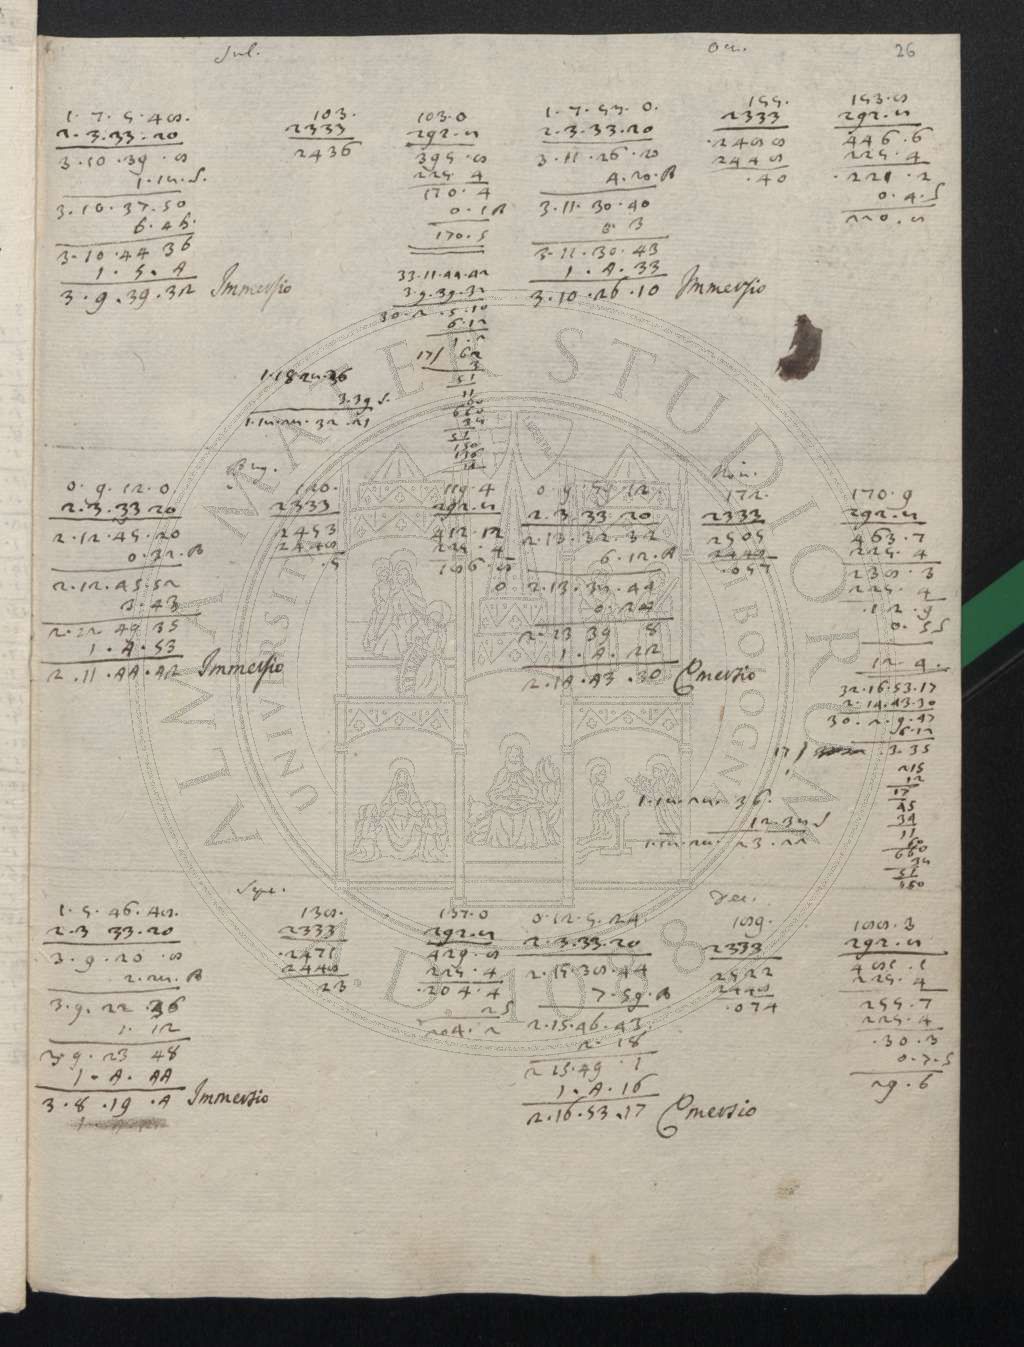 Jul.
1. 7. 5. 48.
2. 3. 33. 20
3. 10. 39. 8
1. 14. S.
3. 10. 37. 50
6. 46.
3. 10. 44 36
1. 5. A
3. 9. 39. 32 Immersio
103.
2333
2436
103. 0
292. 5
395. 8
225. 4
170. 4
0. 1 A
170. 5
33. 11. 44. 42
3. 9. 39. 32
30. 2. 5. 10
6. 12
17/ 62
51
11
60
660
34
51
150
136
1. 18 24. 36
3. 39 S.
1. 14. 24. 32. 21
Oct.
26
1. 7. 53. 0.
2. 3. 33. 20
3. 11. 26. 20
4. 20. A
3. 11. 30. 40
0. 3
3. 11. 30. 43
1. 4. 33
3. 10. 26. 10 Immersio
155.
2333
2488
2448
. 40
153. 8
292. 5
446. 6
225. 4
. 221. 2
0. 4. S
220. 5
Aug.
0. 9. 12. 0
2. 3. 33 20
2. 12. 45. 20
0. 32. A
2. 12. 45. 52
3. 43
2. 12 49 35
1. 4. 53
2. 11. 44. 42 Immersio
120.
2333
2453
2448
. 5
119. 4
292. 5
412. 12
225. 4
186. 8
0
Nov.
0 9 59 12.
2. 3 33 20
2. 13. 32. 32
6. 12. A
2. 13. 38. 44
0. 24
2. 13 39 8
1. 4. 22
2. 14. 43. 30 Emersio
172.
2333
2505
2448
. 057
170. 9
292. 5
463. 7
225. 4
238. 3
225. 4
. 12. 9
0. 5 S
12. 4.
32. 16. 53. 17
2. 14. 43. 30
30. 2. 9. 47
6. 12
17 / . 3. 35
215
12
17
45
34
11
60
660
34
51
150
1. 14. 24. 36.
12. 34 S
1. 14. 24. 23. 22
Sept.
1. 5. 46. 48.
2. 3 33. 20
3. 9. 20. 8
2. 24. A
3. 9. 22. 36
1. 12
3. 9. 23 48
1. 4. 44
3. 8. 19. 4 Immersio
138.
2333
. 2471
2448
23
137. 0
292. 5
429. 8
225. 4
. 204. 4
2 S
204. 2
Dec.
0. 12. 5. 24.
2. 3. 33. 20
2. 15. 38. 44
7. 59. A
2. 15. 46. 43.
2. 18
2 15. 49. 1
1. 4. 16
2. 16. 53. 17 Emersio
189.
2333
2522
2448
. 074
188. 3
292. 5
481. 1
225. 4
255. 7
225. 4
. 30. 3
0. 7. S
29. 6
ALMA MATER STUDIORUM
UNIVERSITÀ DI BOLOGNA
A.D. 1088